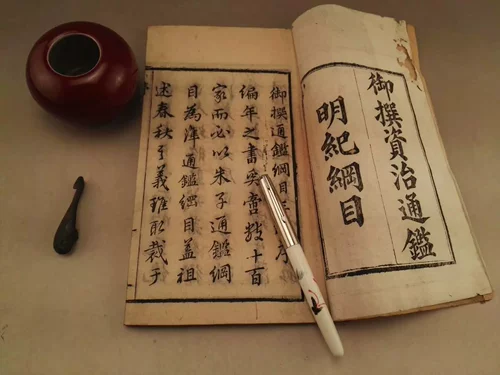 御撰資治通鑑
明紀綱目
御撰通鑑綱目 序
編年之書奚啻數十百
家而必以朱子通鑑綱
目為準通鑑綱目蓋祖
述春秋之義雖取裁于